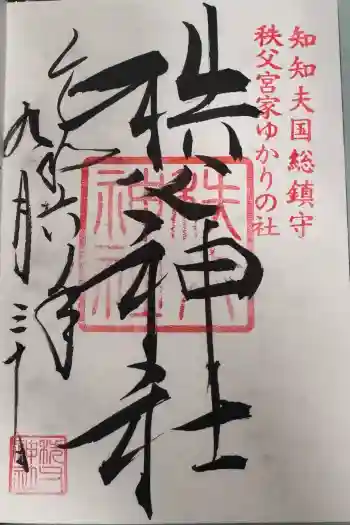 知知夫国総鎮守
秩父宮家ゆかりの社
秩父神社
秩父神社
令和六年
九月三十日
秩父神社